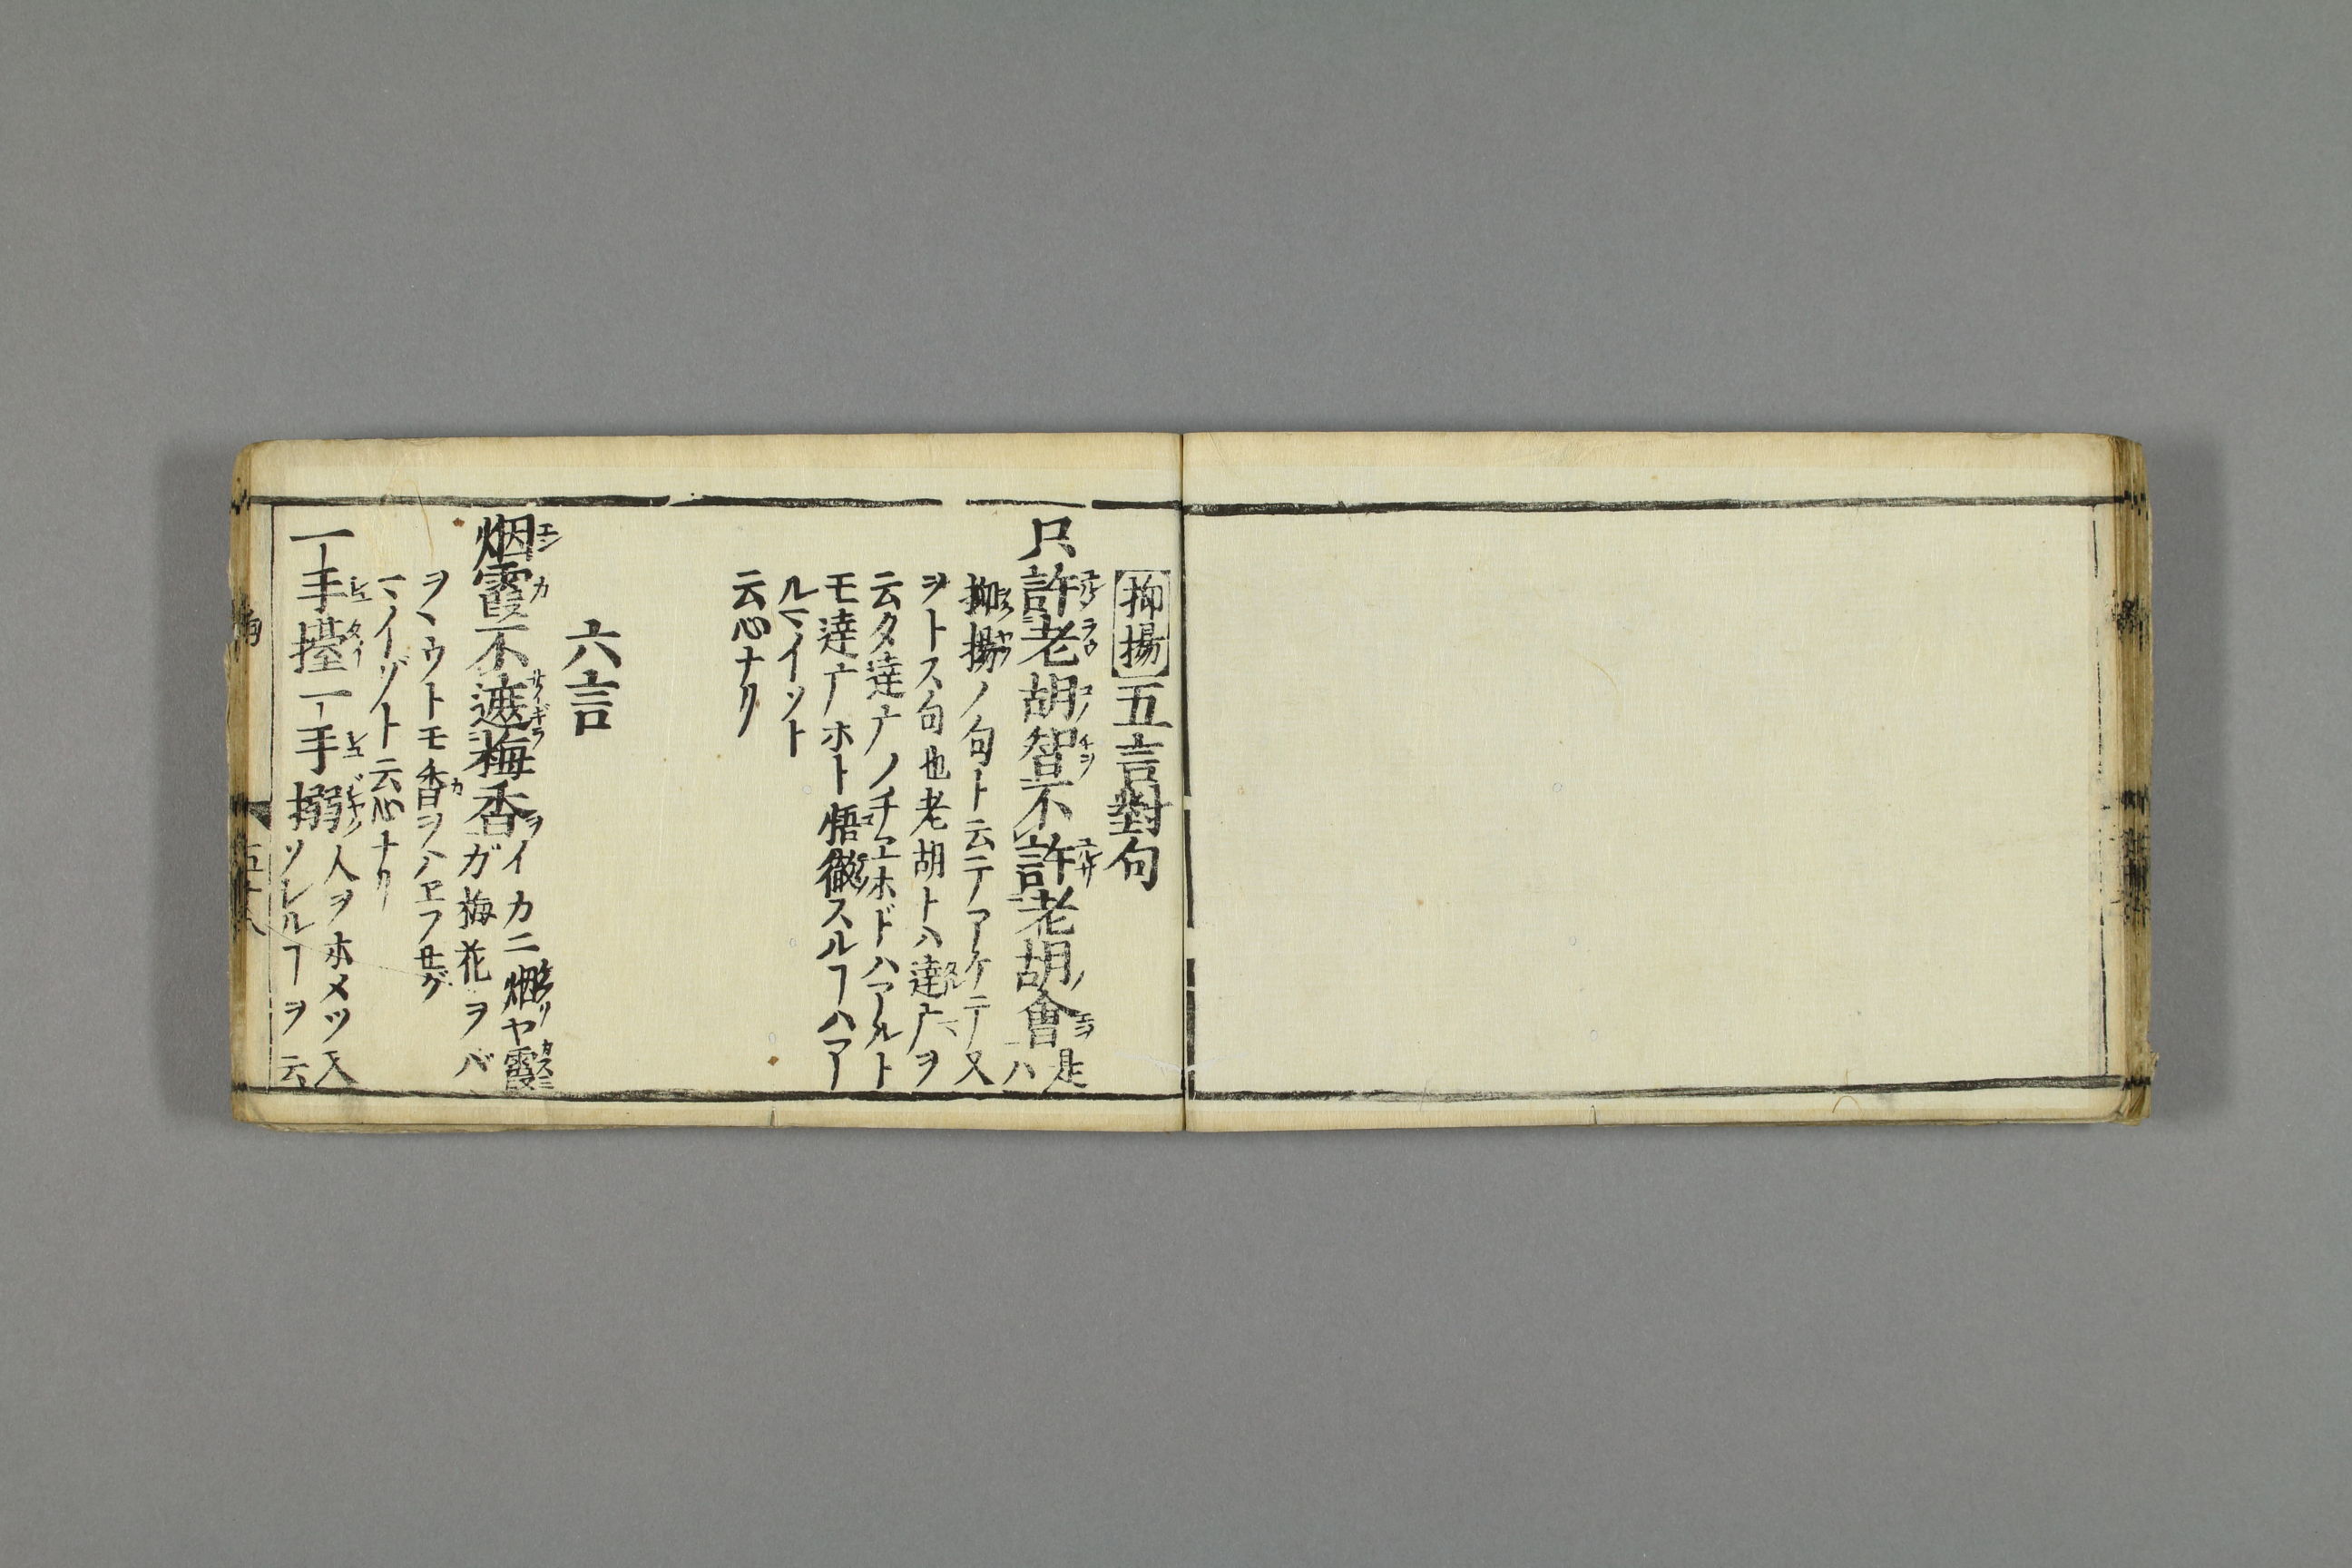 抑揚五言對句
只許老胡智不許老胡會是ハ
抑揚ノ句ト云テアケテ又
ヲトス句也老胡トハ達广ヲ
云タ達广ノチヱホドハアルト
モ達广ホト悟徹スルヿハアー
ルマイソト
云心ナリ
六言
烟霞不遮梅香イカニ烟ヤ霞
ガ梅花ヲバ
ヲヽウトモ香ヲハヱフサグ
マイゾト云心ナリ
一手擡一手搦人ヲホメツ又
ソレルヿヲ云